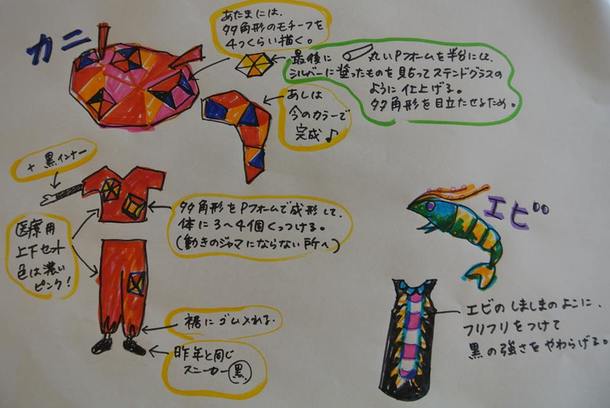 カニ
あたまには、
多角形のモチーフを
4つくらい描く。
最後に 丸いPフォームを半分にして、
シルバーに塗ったものを貼ってステンドグラスの
ように仕上げる。
多角形を目立たせるため。
あしは
今のカラーで
完成♪
+黒インナー
多角形をPフォームで成形して、
体に3〜4個くっつける。
(動きのジャマにならない所へ)
医療用
上下セット
色は濃い
ピンク!
裾にゴム入れる。
昨年と同じ
スニーカー黒。
エビ
エビのしましまのよこに、
フリフリをつけて
黒の強さをやわらげる。